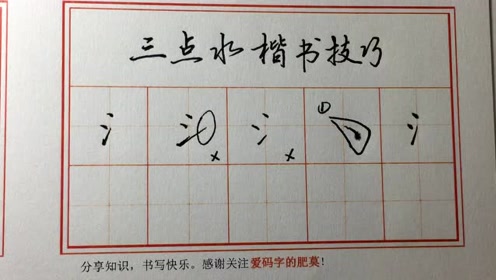 三点水楷书技巧
氵 氵 × 氵 × ① 氵
分享知识，书写快乐。感谢关注爱码字的肥莫！